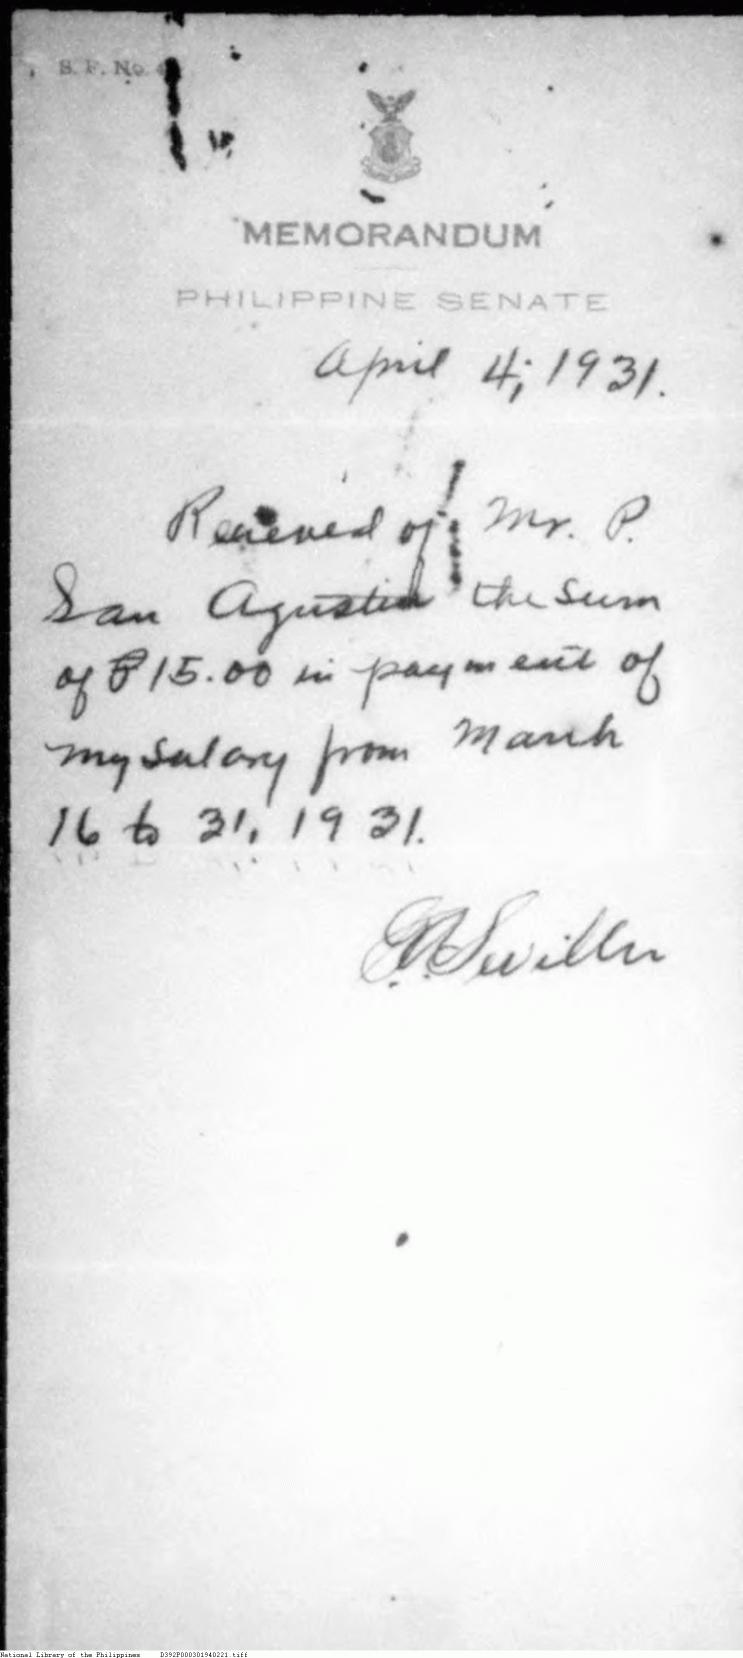 S. F. No. 4
MEMORANDUM
PHILIPPINE SENATE
April 4, 1931.
Received of Mr. P.
San Agustin the sum
of ₱15.00 in payment of
my salary from March
16 to 31, 1931.
Sevilla
National Library of the Philippines D392P000301940221.tiff